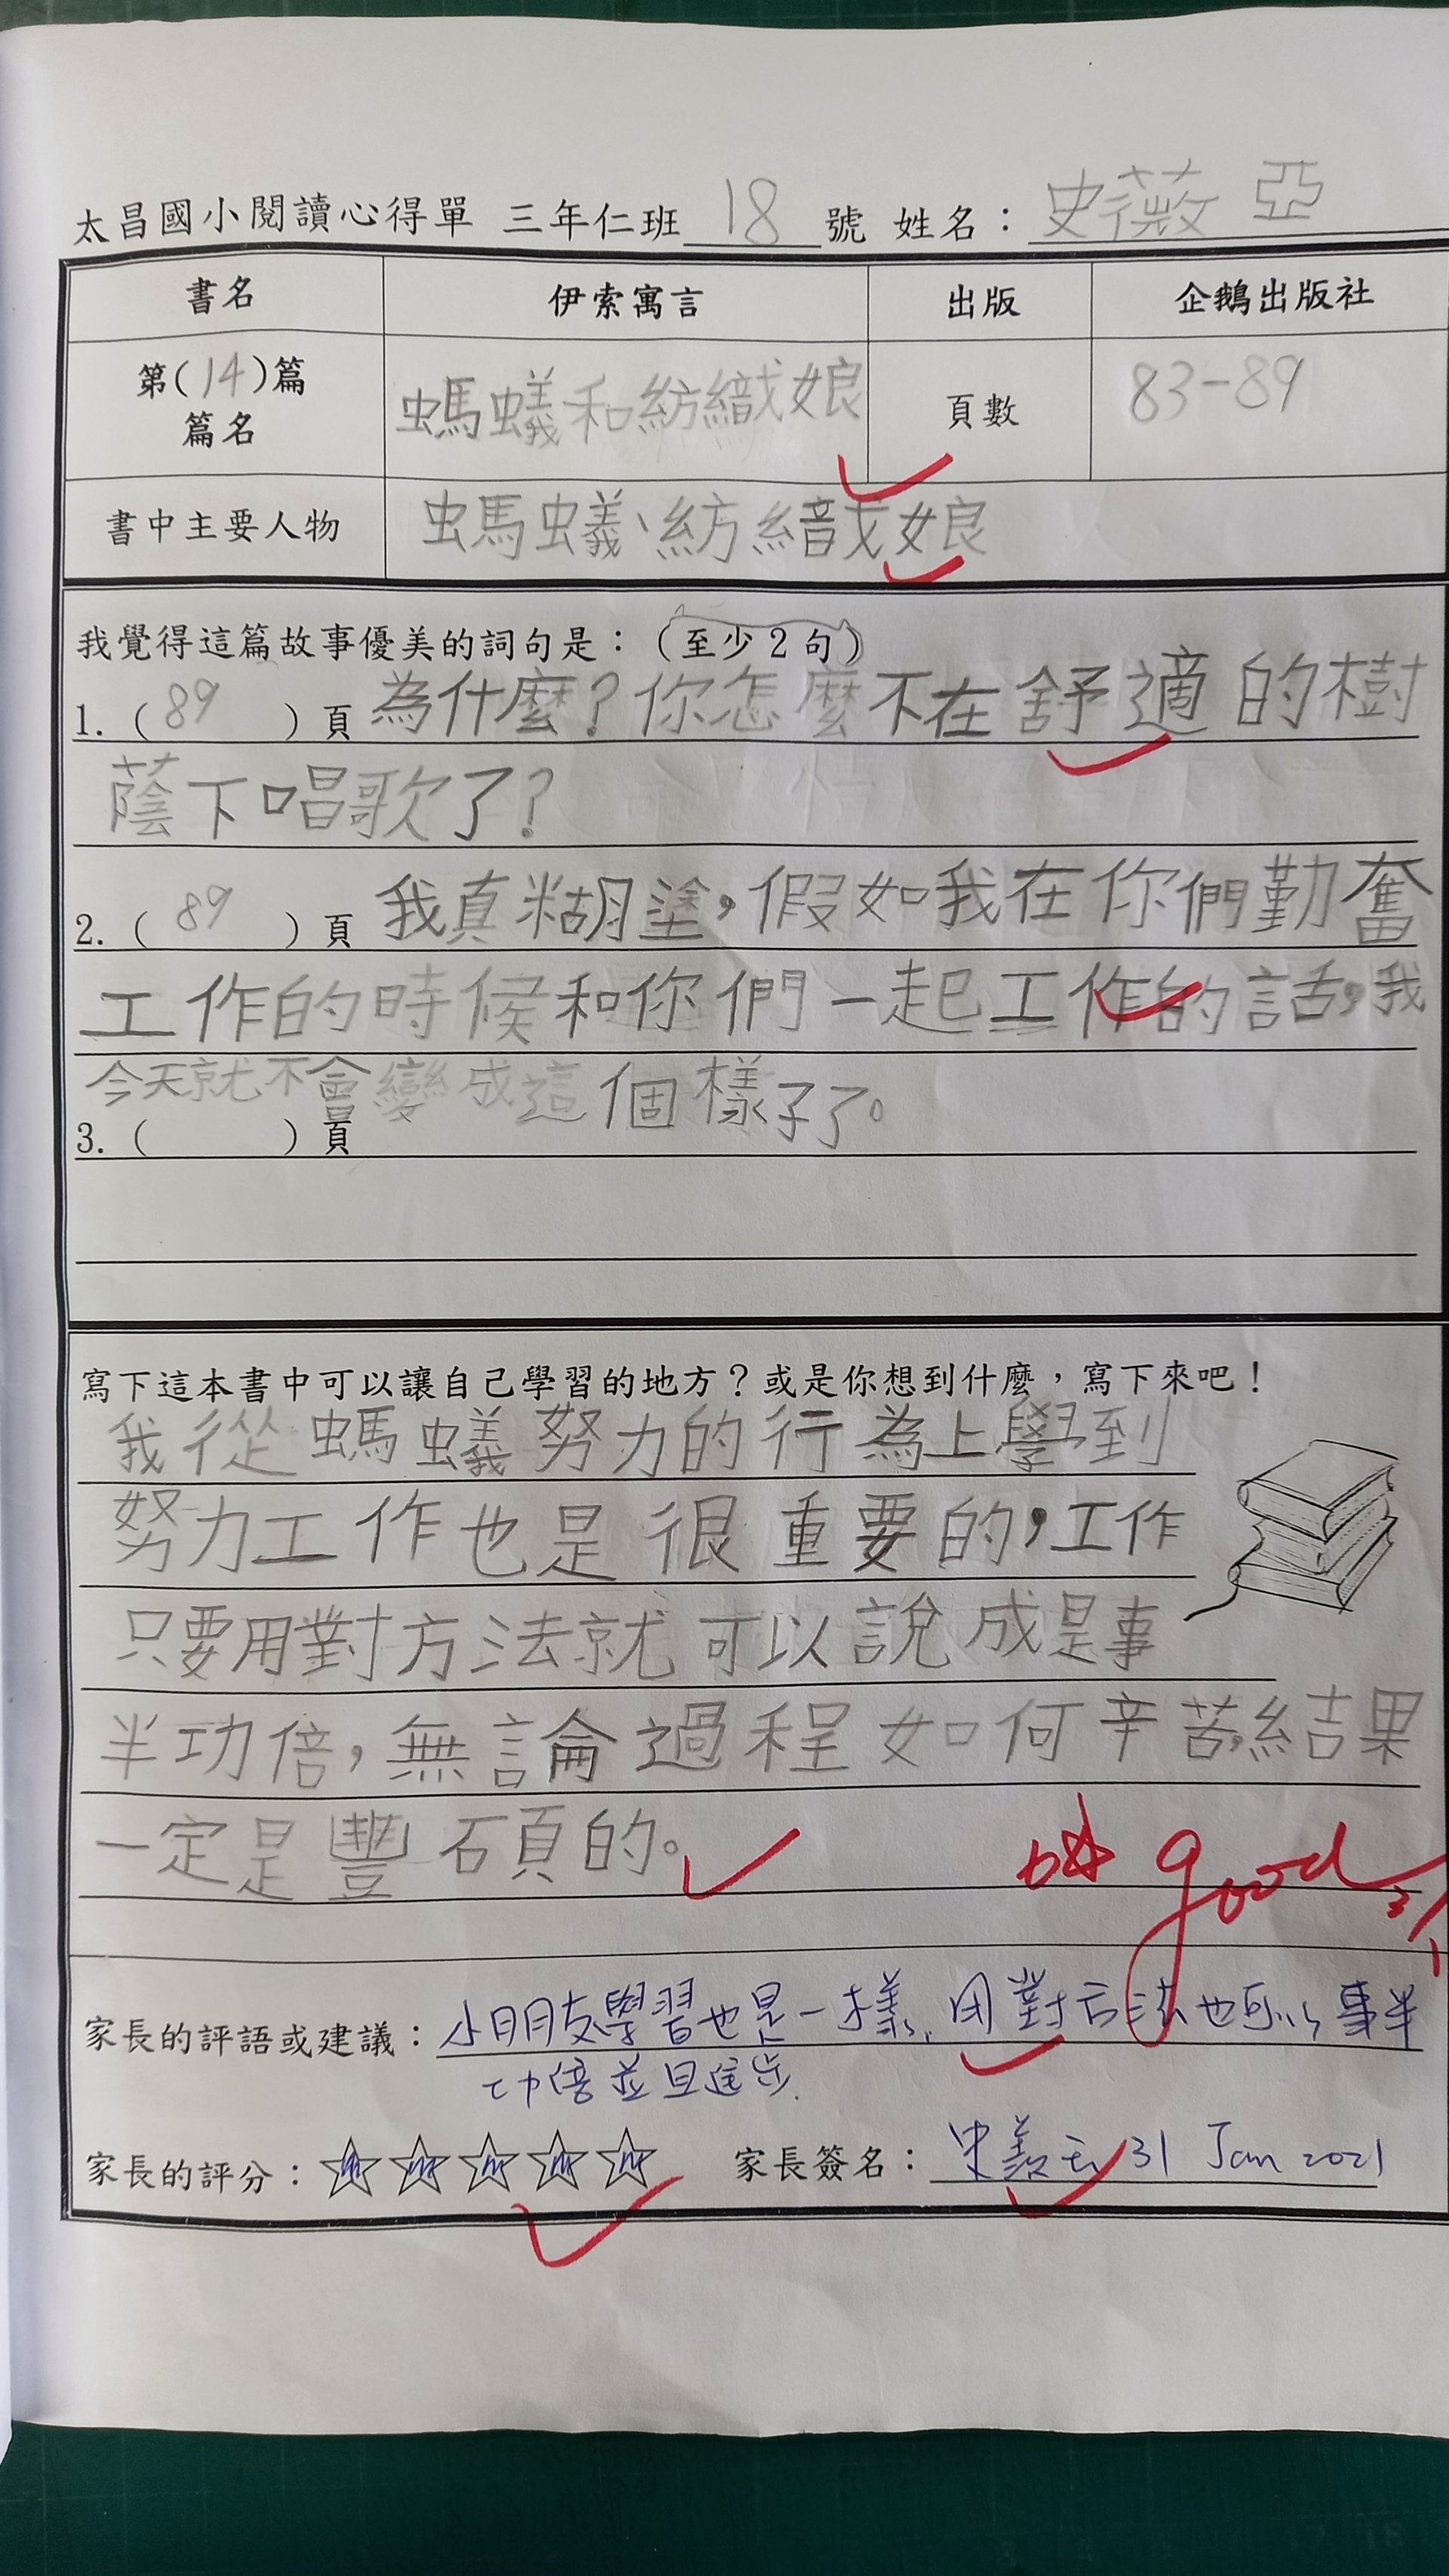 太昌國小閱讀心得單 三年仁班 18 號 姓名：史薇亞
書名 伊索寓言 出版 企鵝出版社
第(14)篇
篇名 螞蟻和紡織娘 頁數 83-89
書中主要人物 螞蟻、紡織娘
我覺得這篇故事優美的詞句是：（至少2句）
1.（ 89 ）頁 為什麼？你怎麼不在舒適的樹
蔭下唱歌了？
2.（ 89 ）頁 我真糊塗，假如我在你們勤奮
工作的時候和你們一起工作的話，我
今天就不會變成這個樣子了。
3.（ ）頁
寫下這本書中可以讓自己學習的地方？或是你想到什麼，寫下來吧！
我從螞蟻努力的行為上學到
努力工作也是很重要的，工作
只要用對方法就可以說成是事
半功倍，無論過程如何辛苦，結果
一定是豐碩的。
good
家長的評語或建議：小朋友學習也是一樣，用對方法也可以事半
功倍並且進步.
家長的評分：☆☆☆☆☆ 家長簽名：史 31 Jan 2021